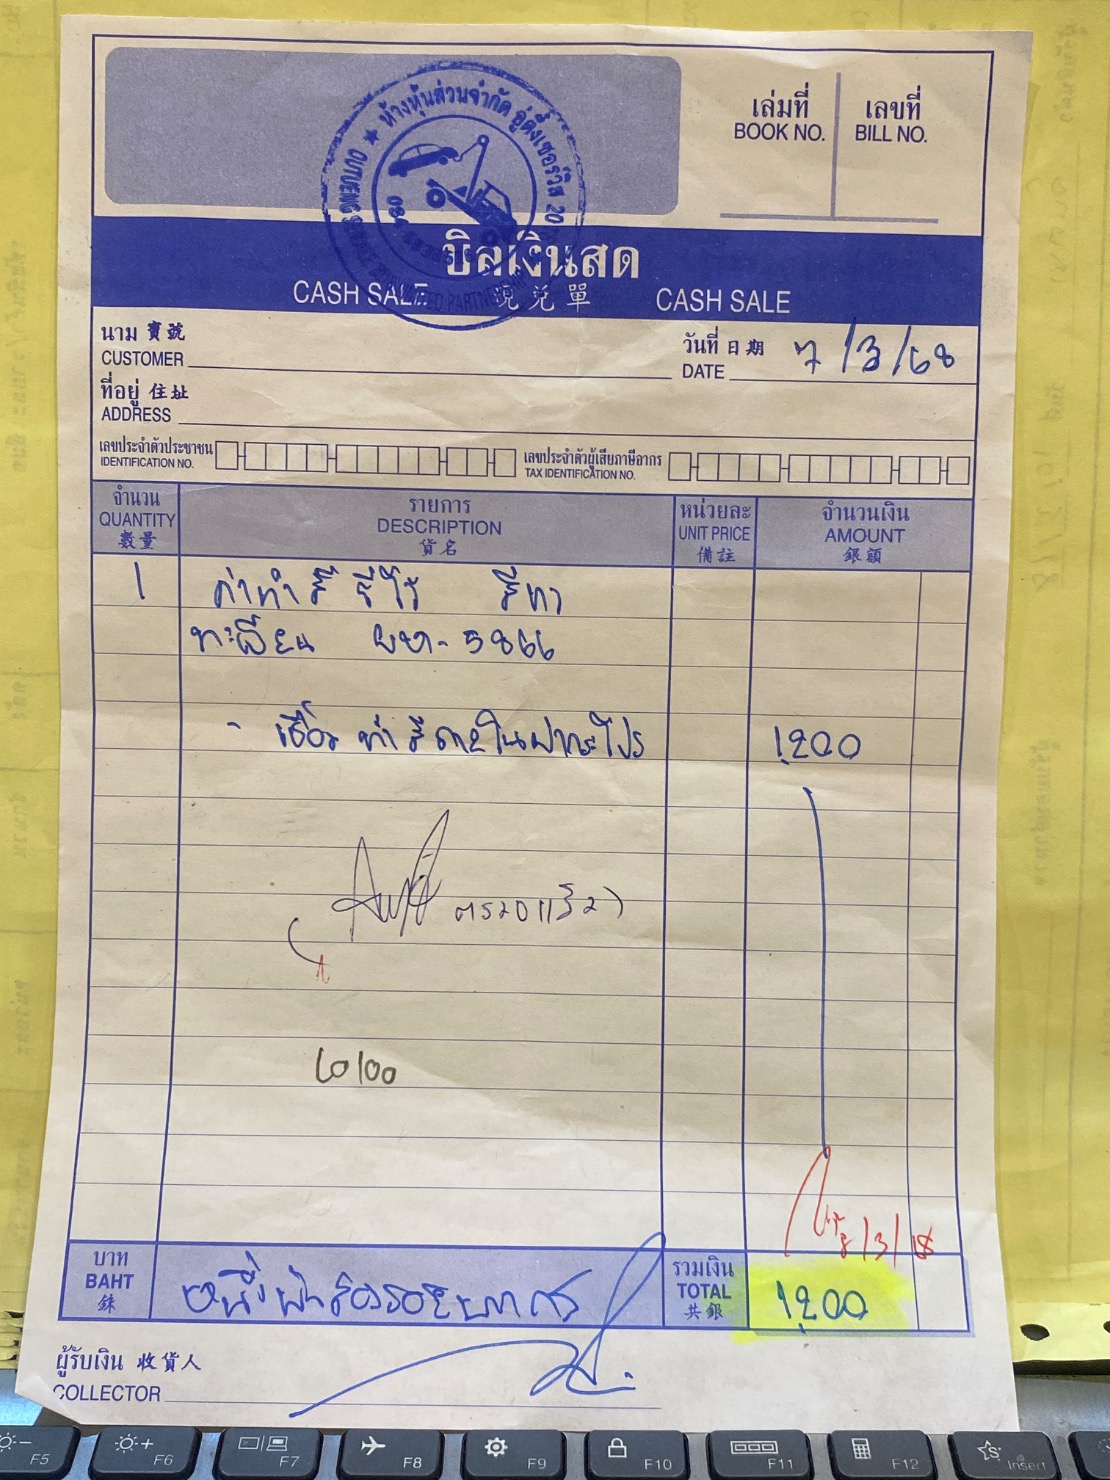 ห้างหุ้นส่วนจำกัด อู่ตั้งเซอร์วิส 20
เล่มที่ เลขที่
BOOK NO. BILL NO.
บิลเงินสด
CASH SALE 現兌單 CASH SALE
นาม 寶號
CUSTOMER
วันที่ 日期 7/3/68
DATE
ที่อยู่ 住址
ADDRESS
เลขประจำตัวประชาชน
IDENTIFICATION NO.
เลขประจำตัวผู้เสียภาษีอากร
TAX IDENTIFICATION NO.
จำนวน รายการ หน่วยละ จำนวนเงิน
QUANTITY DESCRIPTION UNIT PRICE AMOUNT
數量 貨名 備註 銀額
1 ค่าทำสี รีโว่ สีเทา
ทะเบียน ผหา-5866
- ทำสีภายในฝากระโปรง 1,200
8/3/68
บาท
BAHT
銖
หนึ่งพันสองร้อยบาท
รวมเงิน
TOTAL 1,200
共銀
ผู้รับเงิน 收貨人
COLLECTOR
F5 F6 F7 F8 F9 F10 F11 F12 Insert